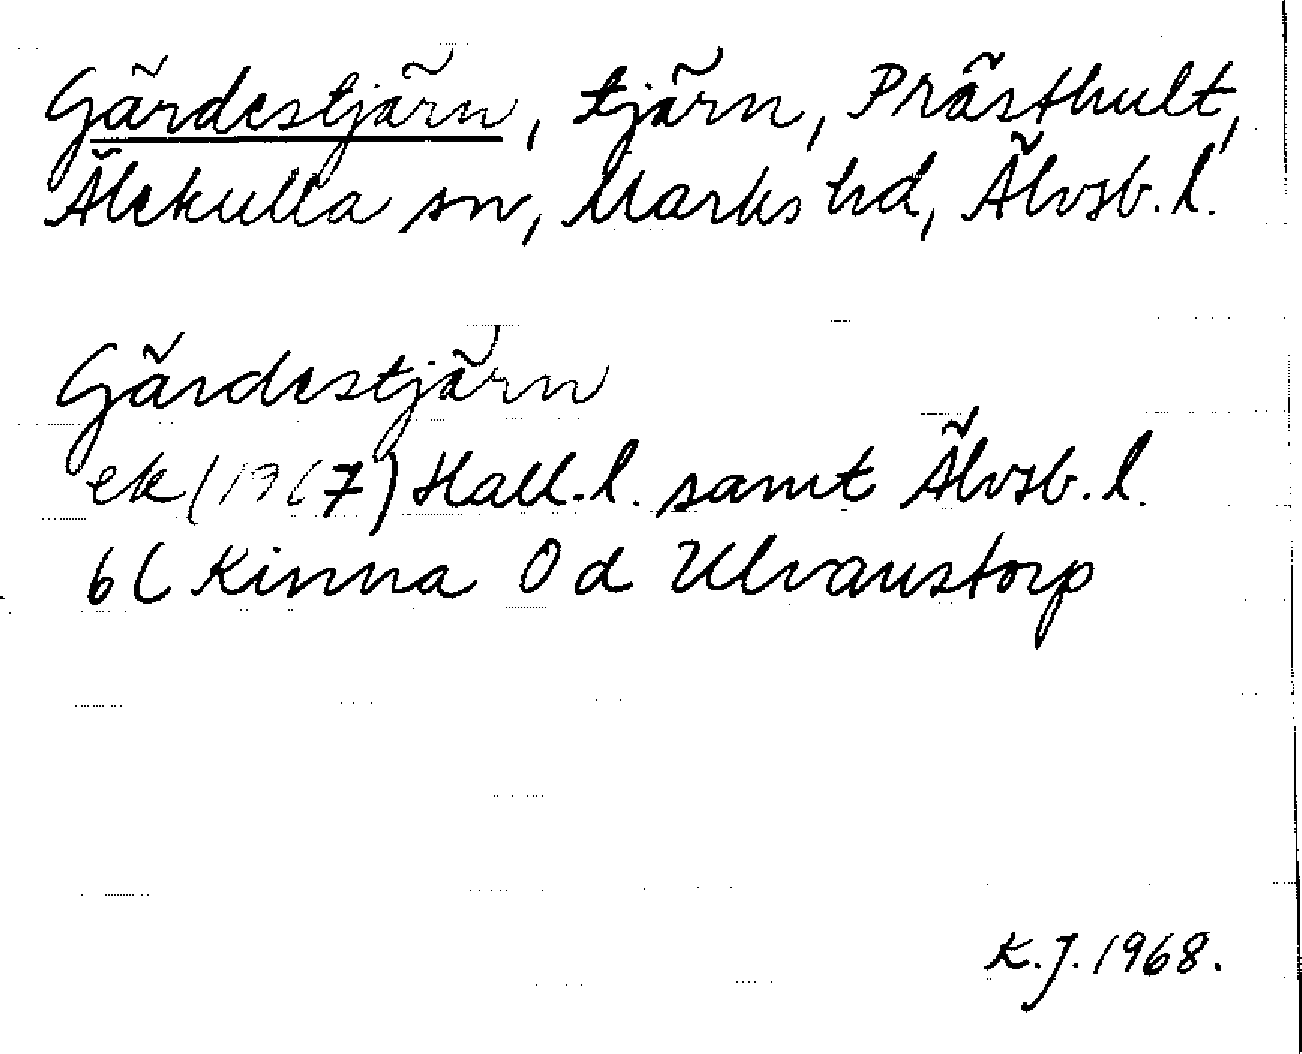 Gärdestjärn, tjärn, Prästhult,
Älekulla sn, Marks hd, Älvsb. l.
Gärdestjärn
ek (1967) Hall. l. samt Älvsb. l.
6C Kinna 0 d Ulvanstorp
K.J. 1968.